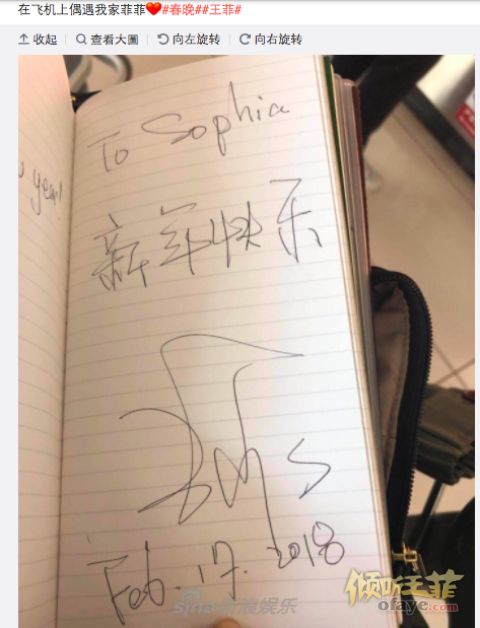 在飞机上偶遇我家菲菲❤️#春晚##王菲#
收起 查看大圖 向左旋转 向右旋转
year!
To Sophia
新年快乐
Feb. 17. 2018
sina新浪娱乐
倾听王菲
ofaye.com